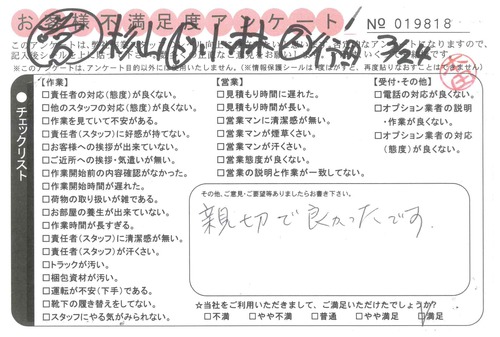 お客様不満足度アンケート
No 019818
【作業】
□責任者の対応(態度)が良くない。
□他のスタッフの対応(態度)が良くない。
□作業を見ていて不安がある。
□責任者(スタッフ)に好感が持てない。
□お客様への挨拶が出来ていない。
□ご近所への挨拶・気遣いが無い。
□作業開始前の内容確認がなかった。
□作業開始時間が遅れた。
□荷物の取り扱いが雑である。
□お部屋の養生が出来ていない。
□作業時間が長すぎる。
□責任者(スタッフ)に清潔感が無い。
□責任者(スタッフ)が汗くさい。
□トラックが汚い。
□梱包資材が汚い。
□運転が不安(下手)である。
□靴下の履き替えをしてない。
□スタッフにやる気がみられない。
【営業】
□見積もり時間に遅れた。
□見積もり時間が長い。
□営業マンに清潔感が無い。
□営業マンが煙草くさい。
□営業マンが汗くさい。
□営業態度が良くない。
□営業の説明と作業が一致してない。
【受付・その他】
□電話の対応が良くない。
□オプション業者の説明
・作業が良くない。
□オプション業者の対応
(態度)が良くない。
チェックリスト
その他、ご意見・ご要望等ありましたらお書き下さい。
親切で良かったです
☆当社をご利用いただきまして、ご満足いただけたでしょうか?
□不満 □やや不満 □普通 □やや満足 □満足